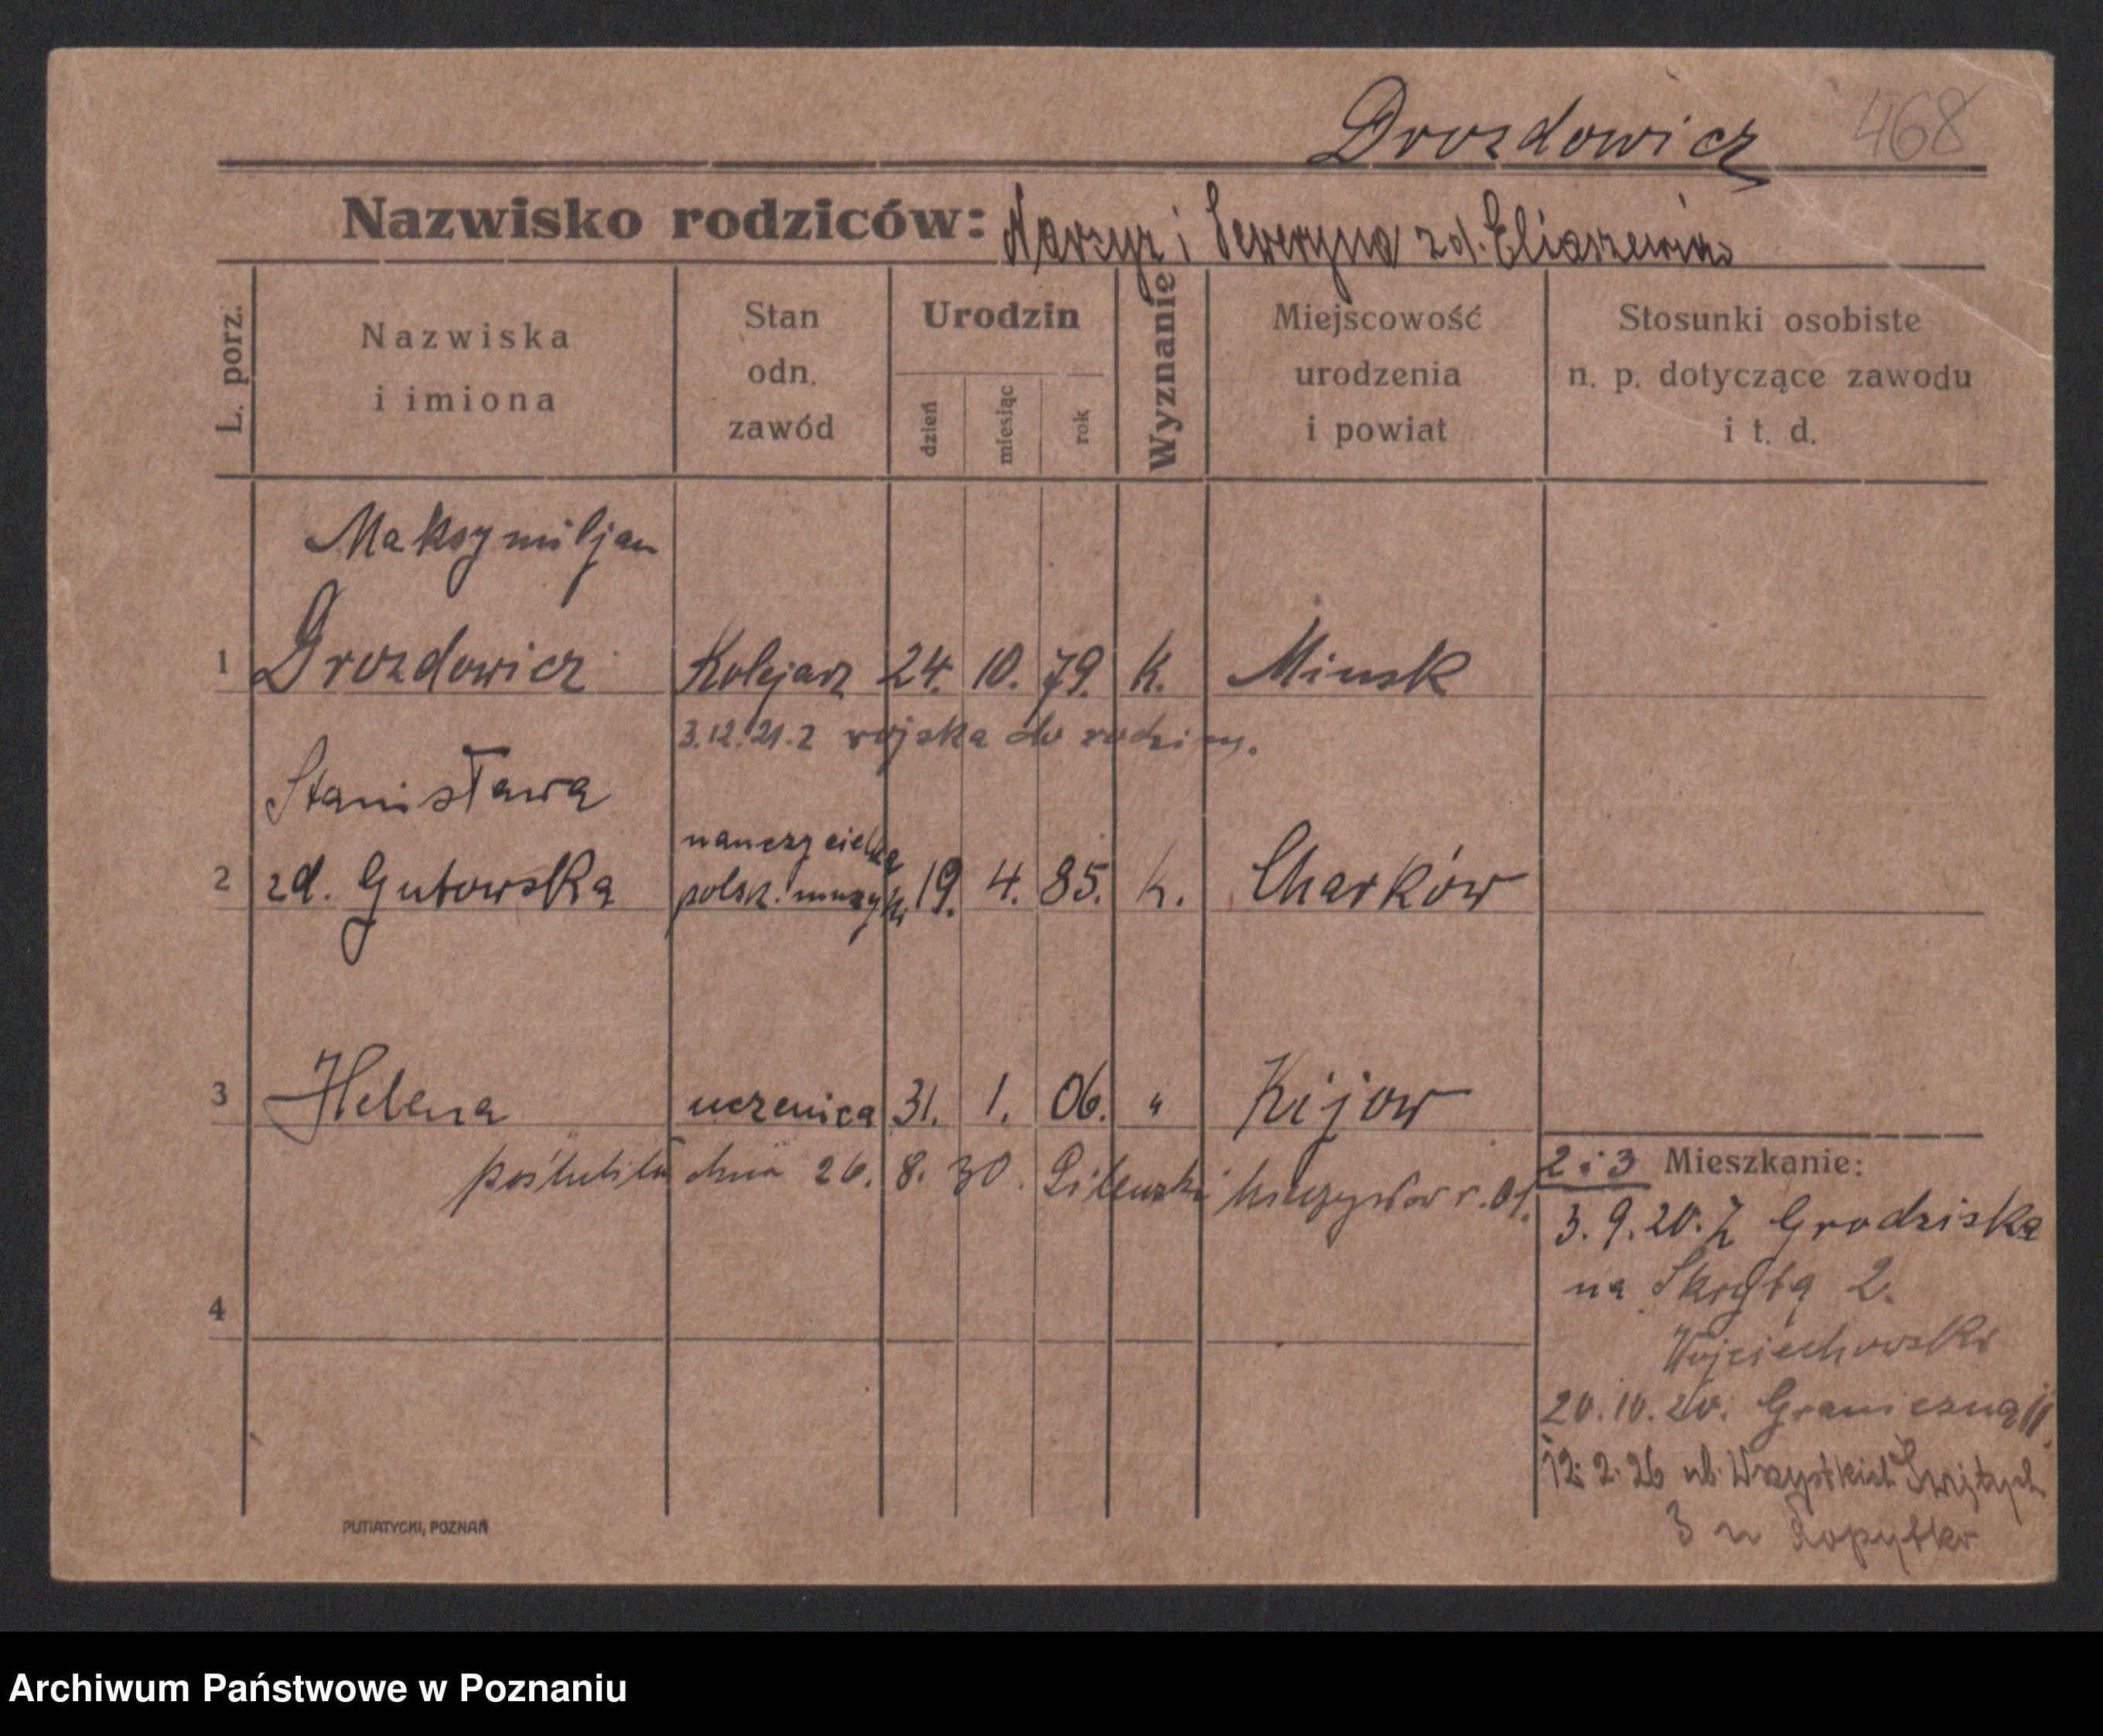 Drozdowicz 468
Nazwisko rodziców: Narzyz i Seweryna zd. Eliaszewicz
L. porz.
Nazwiska
i imiona
Stan
odn.
zawód
Urodzin
dzień
miesiąc
rok
Wyznanie
Miejscowość
urodzenia
i powiat
Stosunki osobiste
n. p. dotyczące zawodu
i t. d.
Maksymiljan
1 Drozdowicz Kolejarz 24. 10. 79. k. Minsk
3.12.21. z wojska do rodziny.
Stanisława
nauczycielka
2 zd. Gutowska polsk. muzyki 19. 4. 85. k. Charków
3 Helena uczenica 31. 1. 06. " Kijow
poślubiła dnia 26. 8. 30. Mieczysław r. 01.
2 i 3 Mieszkanie:
3. 9. 20. z Grodziska
na Skrytą 2.
4
Wojciechowski
20.10.20. Graniczną 11.
12. 2. 26 ul. Wszystkich Świętych
3 u Kopytko
PUTIATYCKI, POZNAŃ
Archiwum Państwowe w Poznaniu